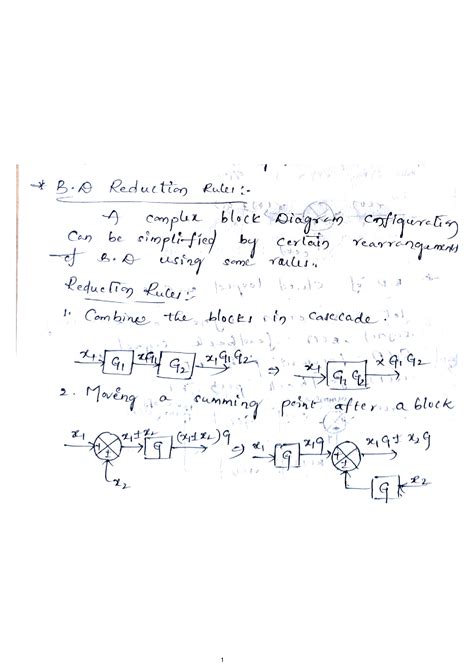 * B.D Reduction Rules:-
A complex block Diagram configuration
Can be simplified by certain rearrangements
of B.D using some rules.
Reduction Rules:-
1. Combine the blocks in casecade.
x1 G1 xG1 G2 x1G1G2 ⇒ x1 G1 G2 x G1 G2
2. Moving a summing point after a block
x1 + ± x1±x2 G (x1±x2)G ⇒ x1 G x1G + ± x1G ± x2G
x2 G x2
1